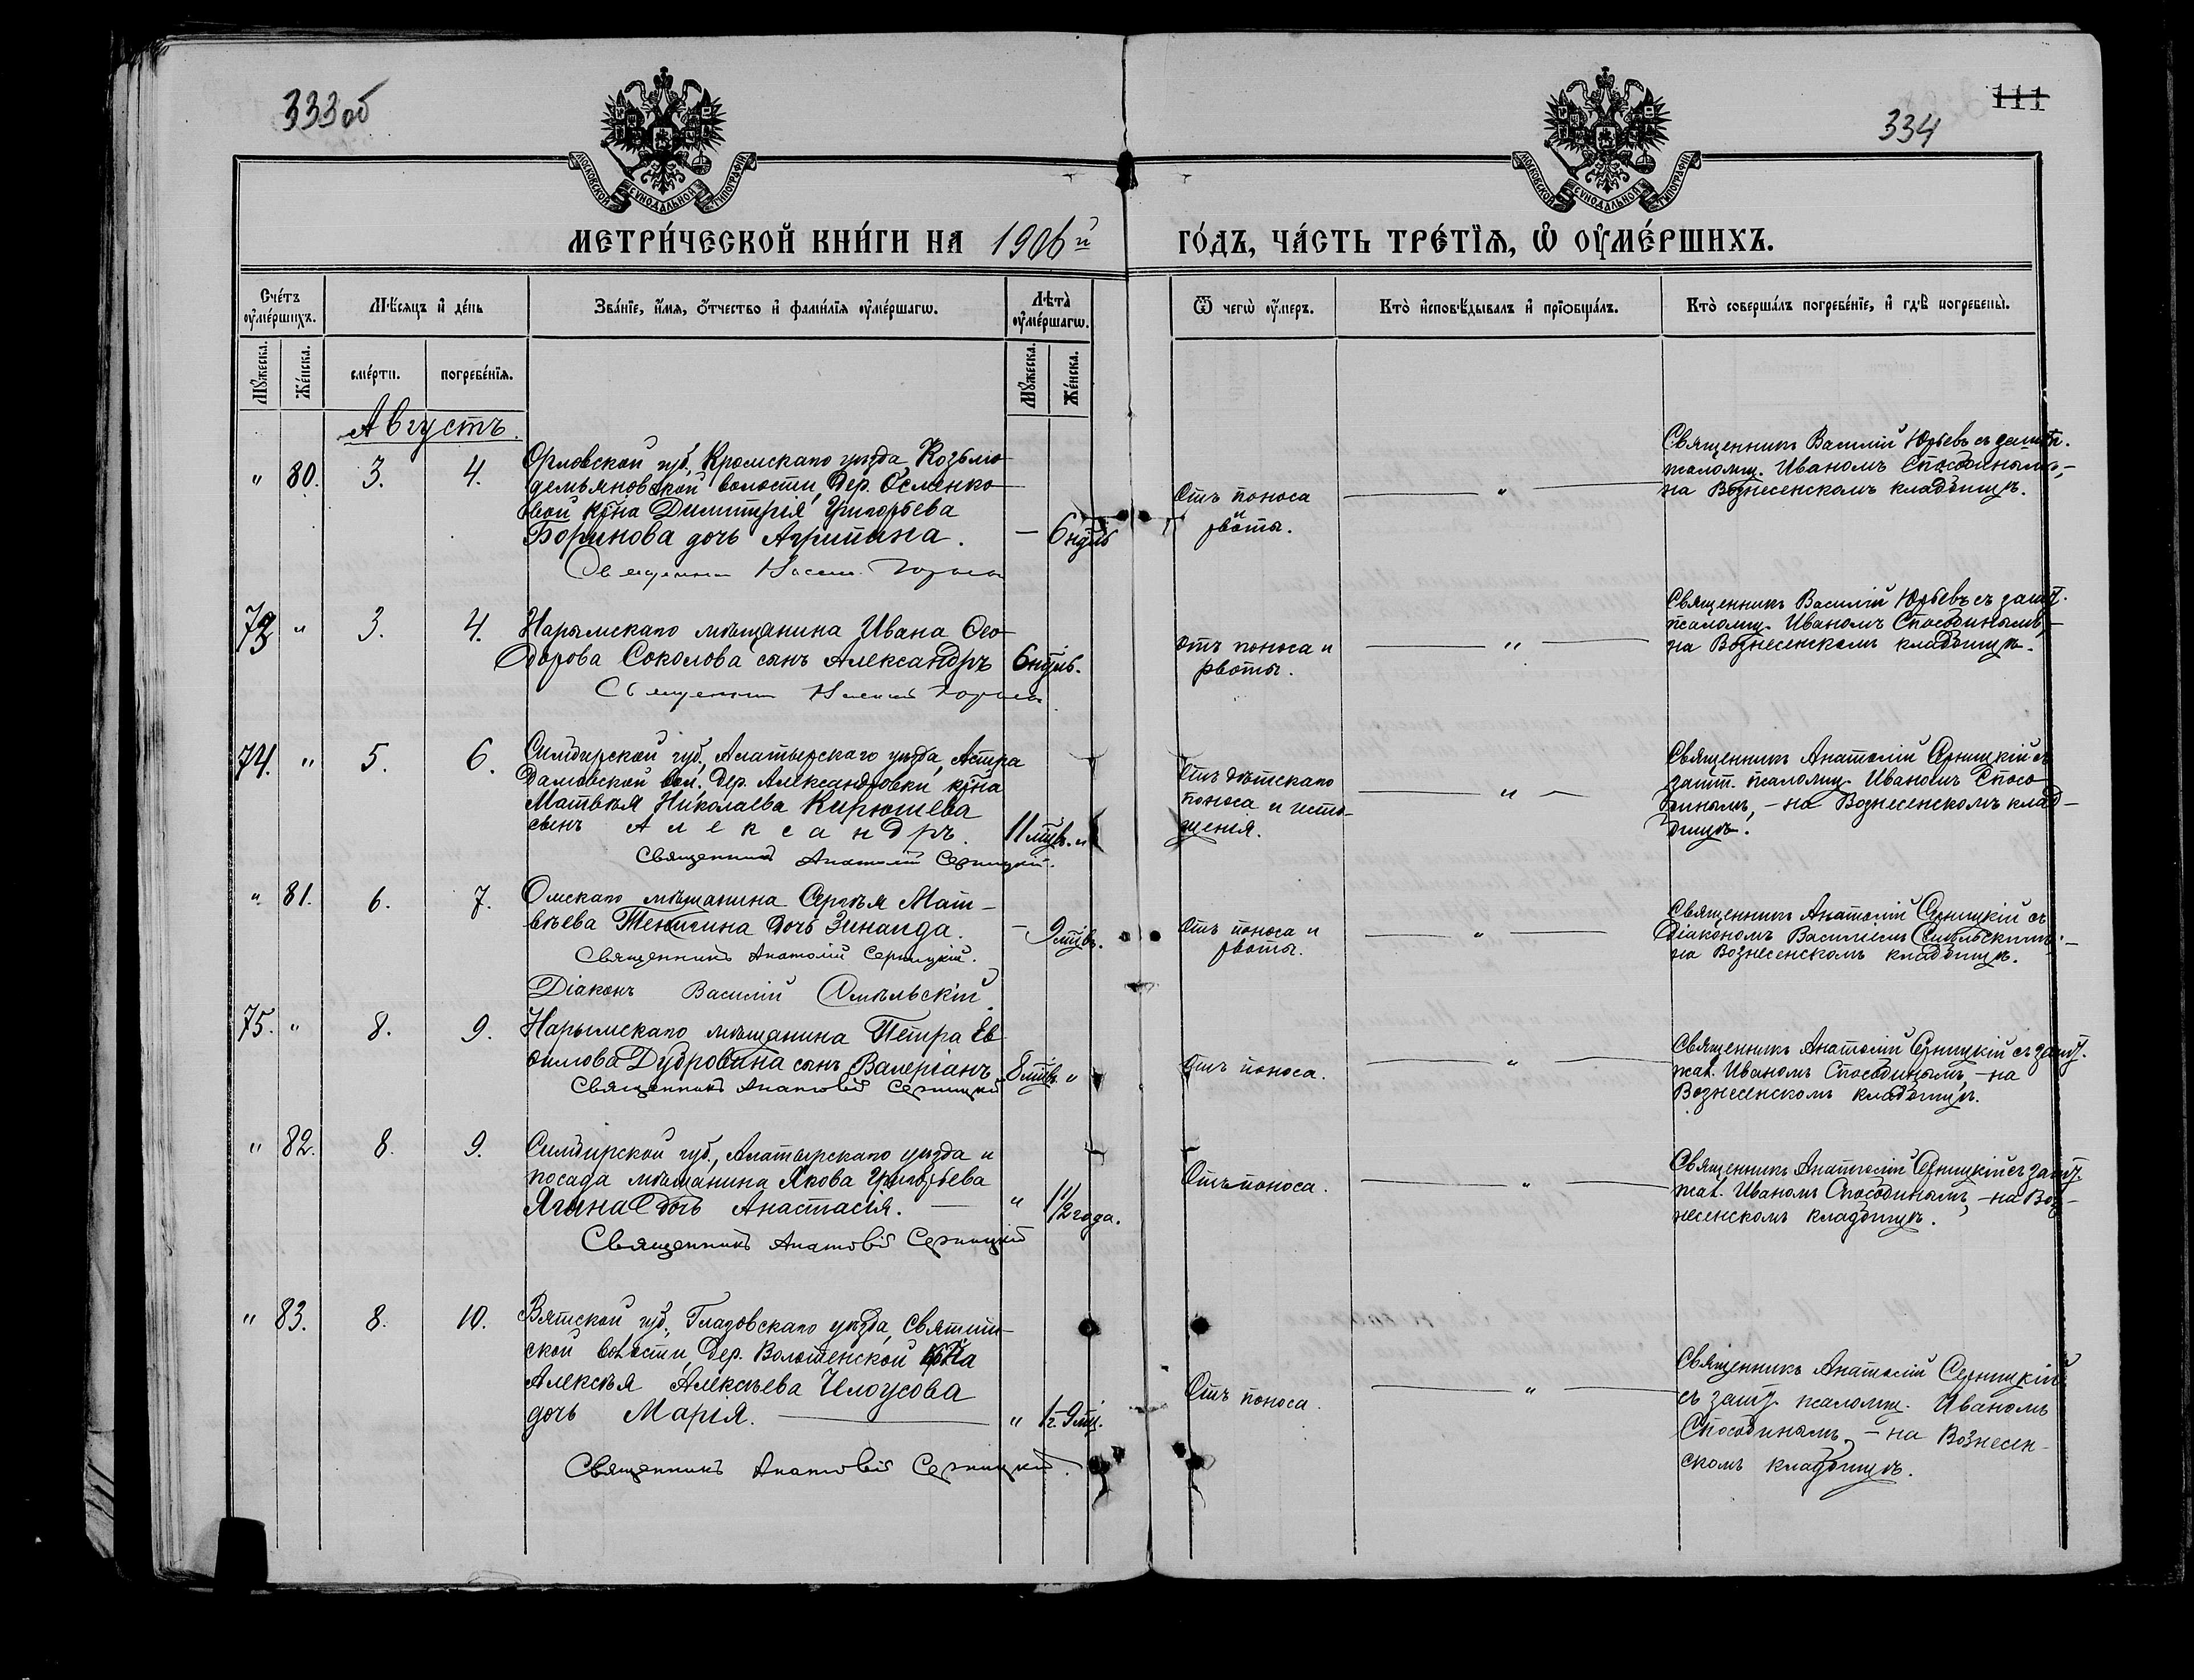 333об
334
111
МОСКОВСКОЙ СѴНОДАЛЬНОЙ ТИПОГРАФІИ
МОСКОВСКОЙ СѴНОДАЛЬНОЙ ТИПОГРАФІИ
МЕТРИ́ЧЕСКОЙ КНИ́ГИ НА 1906й
ГО́ДЪ, ЧА́СТЬ ТРЕ́ТІѦ, Ѿ ОУМЕ́РШИХЪ.
Сче́тъ оумершихъ.
Мѣсяцъ и де́нь
Зва́ніе, и́мя, о́тчество и фами́лія оуме́ршагѡ.
Лѣта̀ оуме́ршагѡ.
Ѿ чегѡ̀ оу́меръ.
Кто̀ исповѣ́дывалъ и пріѡбща́лъ.
Кто̀ соверша́лъ погребе́ніе, и гдѣ̀ погребены̀.
Мꙋжеска. Же́нска.
сме́рти. погребе́нія.
Мꙋжеска. Же́нска.
Августъ.
" 80. 3. 4.
Орловской губ, Кромскаго уѣзда, Козьмо
демьяновской волости, дер. Осменко
вой кр̄на Димитрія Григорьева
Боринова дочь Агрипина. — 6 нд̄ль
Отъ поноса
и
рвоты.
"
Священникъ Василій Юрьевъ съ
псаломщ. Иваномъ Способинымъ, —
на Вознесенскомъ кладбищѣ.
73 " 3. 4.
Нарымскаго мѣщанина Ивана Ѳео
дорова Соколова сынъ Александръ 6 нд̄ль.
отъ поноса и
рвоты.
"
Священникъ Василій Юрьевъ съ зашт.
псаломщ. Иваномъ Способинымъ, —
на Вознесенскомъ кладбищѣ.
74. " 5. 6.
Симбирской губ., Алатырскаго уѣзда, Астра
дамовской вол. дер. Александровки кр̄на
Матвѣя Николаева Кирюшева
сынъ Александръ. 11 мц̄въ. "
Священникъ Анатолій Серницкій.
Отъ дѣтскаго
поноса и исто-
щенія.
"
Священникъ Анатолій Серницкій съ
зашт. псаломщ. Иваномъ Спосо
бинымъ, — на Вознесенскомъ клад-
бищѣ.
" 81. 6. 7.
Омскаго мѣщанина Сергѣя Мат-
вѣева дочь Зинаида. — 9 мц̄въ.
Священникъ Анатолій Серницкій.
Діаконъ Василій Смѣльскій
Отъ поноса и
рвоты.
"
Священникъ Анатолій Серницкій съ
Діакономъ Василіемъ Смѣльскимъ, —
на Вознесенскомъ кладбищѣ.
75. " 8. 9.
Нарымскаго мѣщанина Петра Ев
ѳимова Дубровина сынъ Валеріанъ 8 мц̄въ "
Священникъ Анатолій Серницкій
Отъ поноса.
"
Священникъ Анатолій Серницкій съ зашт.
псал. Иваномъ Способинымъ, — на
Вознесенскомъ кладбищѣ.
" 82. 8. 9.
Симбирской губ., Алатырскаго уѣзда и
посада мѣщанина Якова Григорьева
дочь Анастасія. — " 1 1/2 года.
Священникъ Анатолій Серницкій
Отъ поноса.
"
Священникъ Анатолій Серницкій съ зашт.
псал. Иваномъ Способинымъ, — на Воз-
несенскомъ кладбищѣ.
" 83. 8. 10.
Вятской губ., Глазовскаго уѣзда, Святиц-
ской волости, дер. кр̄на
Алексѣя Алексѣева
дочь Марія. — " 1 г. 9 мц.
Священникъ Анатолій Серницкій.
Отъ поноса.
"
Священникъ Анатолій Серницкій
съ зашт. псаломщ. Иваномъ
Способинымъ, — на Вознесен-
скомъ кладбищѣ.